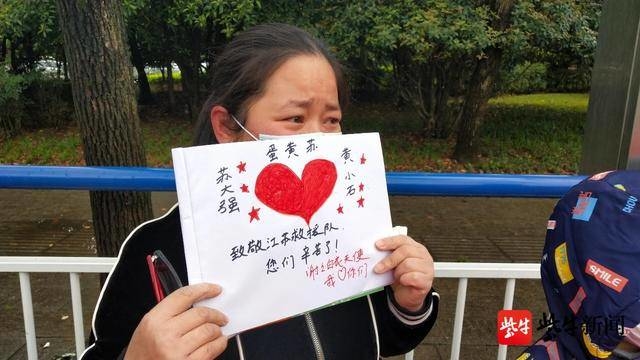 苏大强
蛋黄苏
黄小石
致敬江苏救援队.
您们辛苦了!
谢谢白衣天使
我♡你们
SMILE
紫牛 紫牛新闻